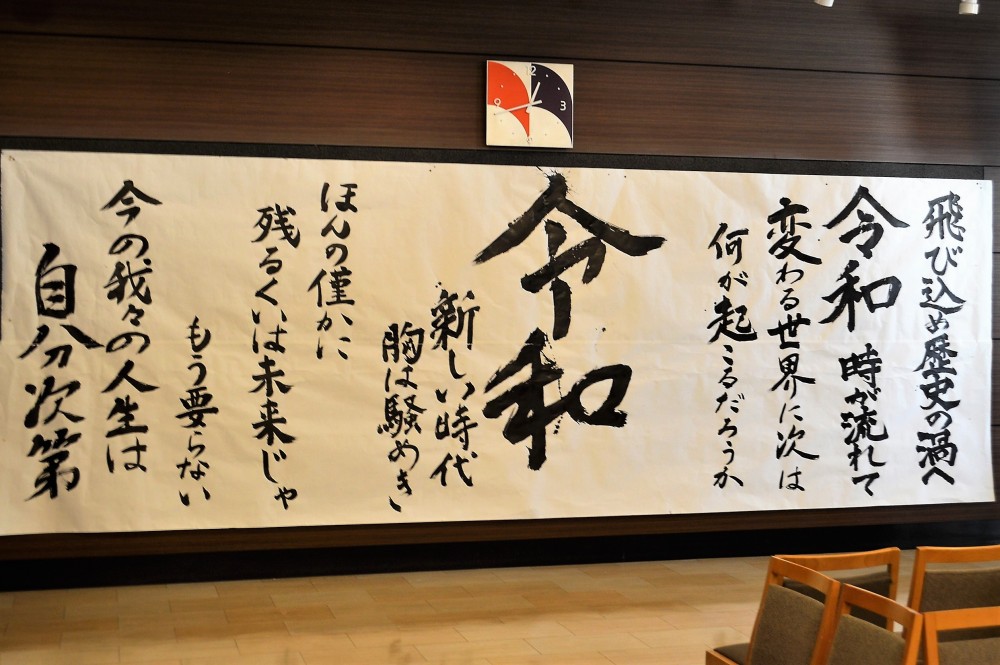 飛び込め歴史の渦へ
令和 時が流れて
変わる世界に次は
何が起こるだろうか
令和
新しい時代
胸は騒めき
ほんの僅かに
残るくいは未来じゃ
もう要らない
今の我々の人生は
自分次第
12
9
3